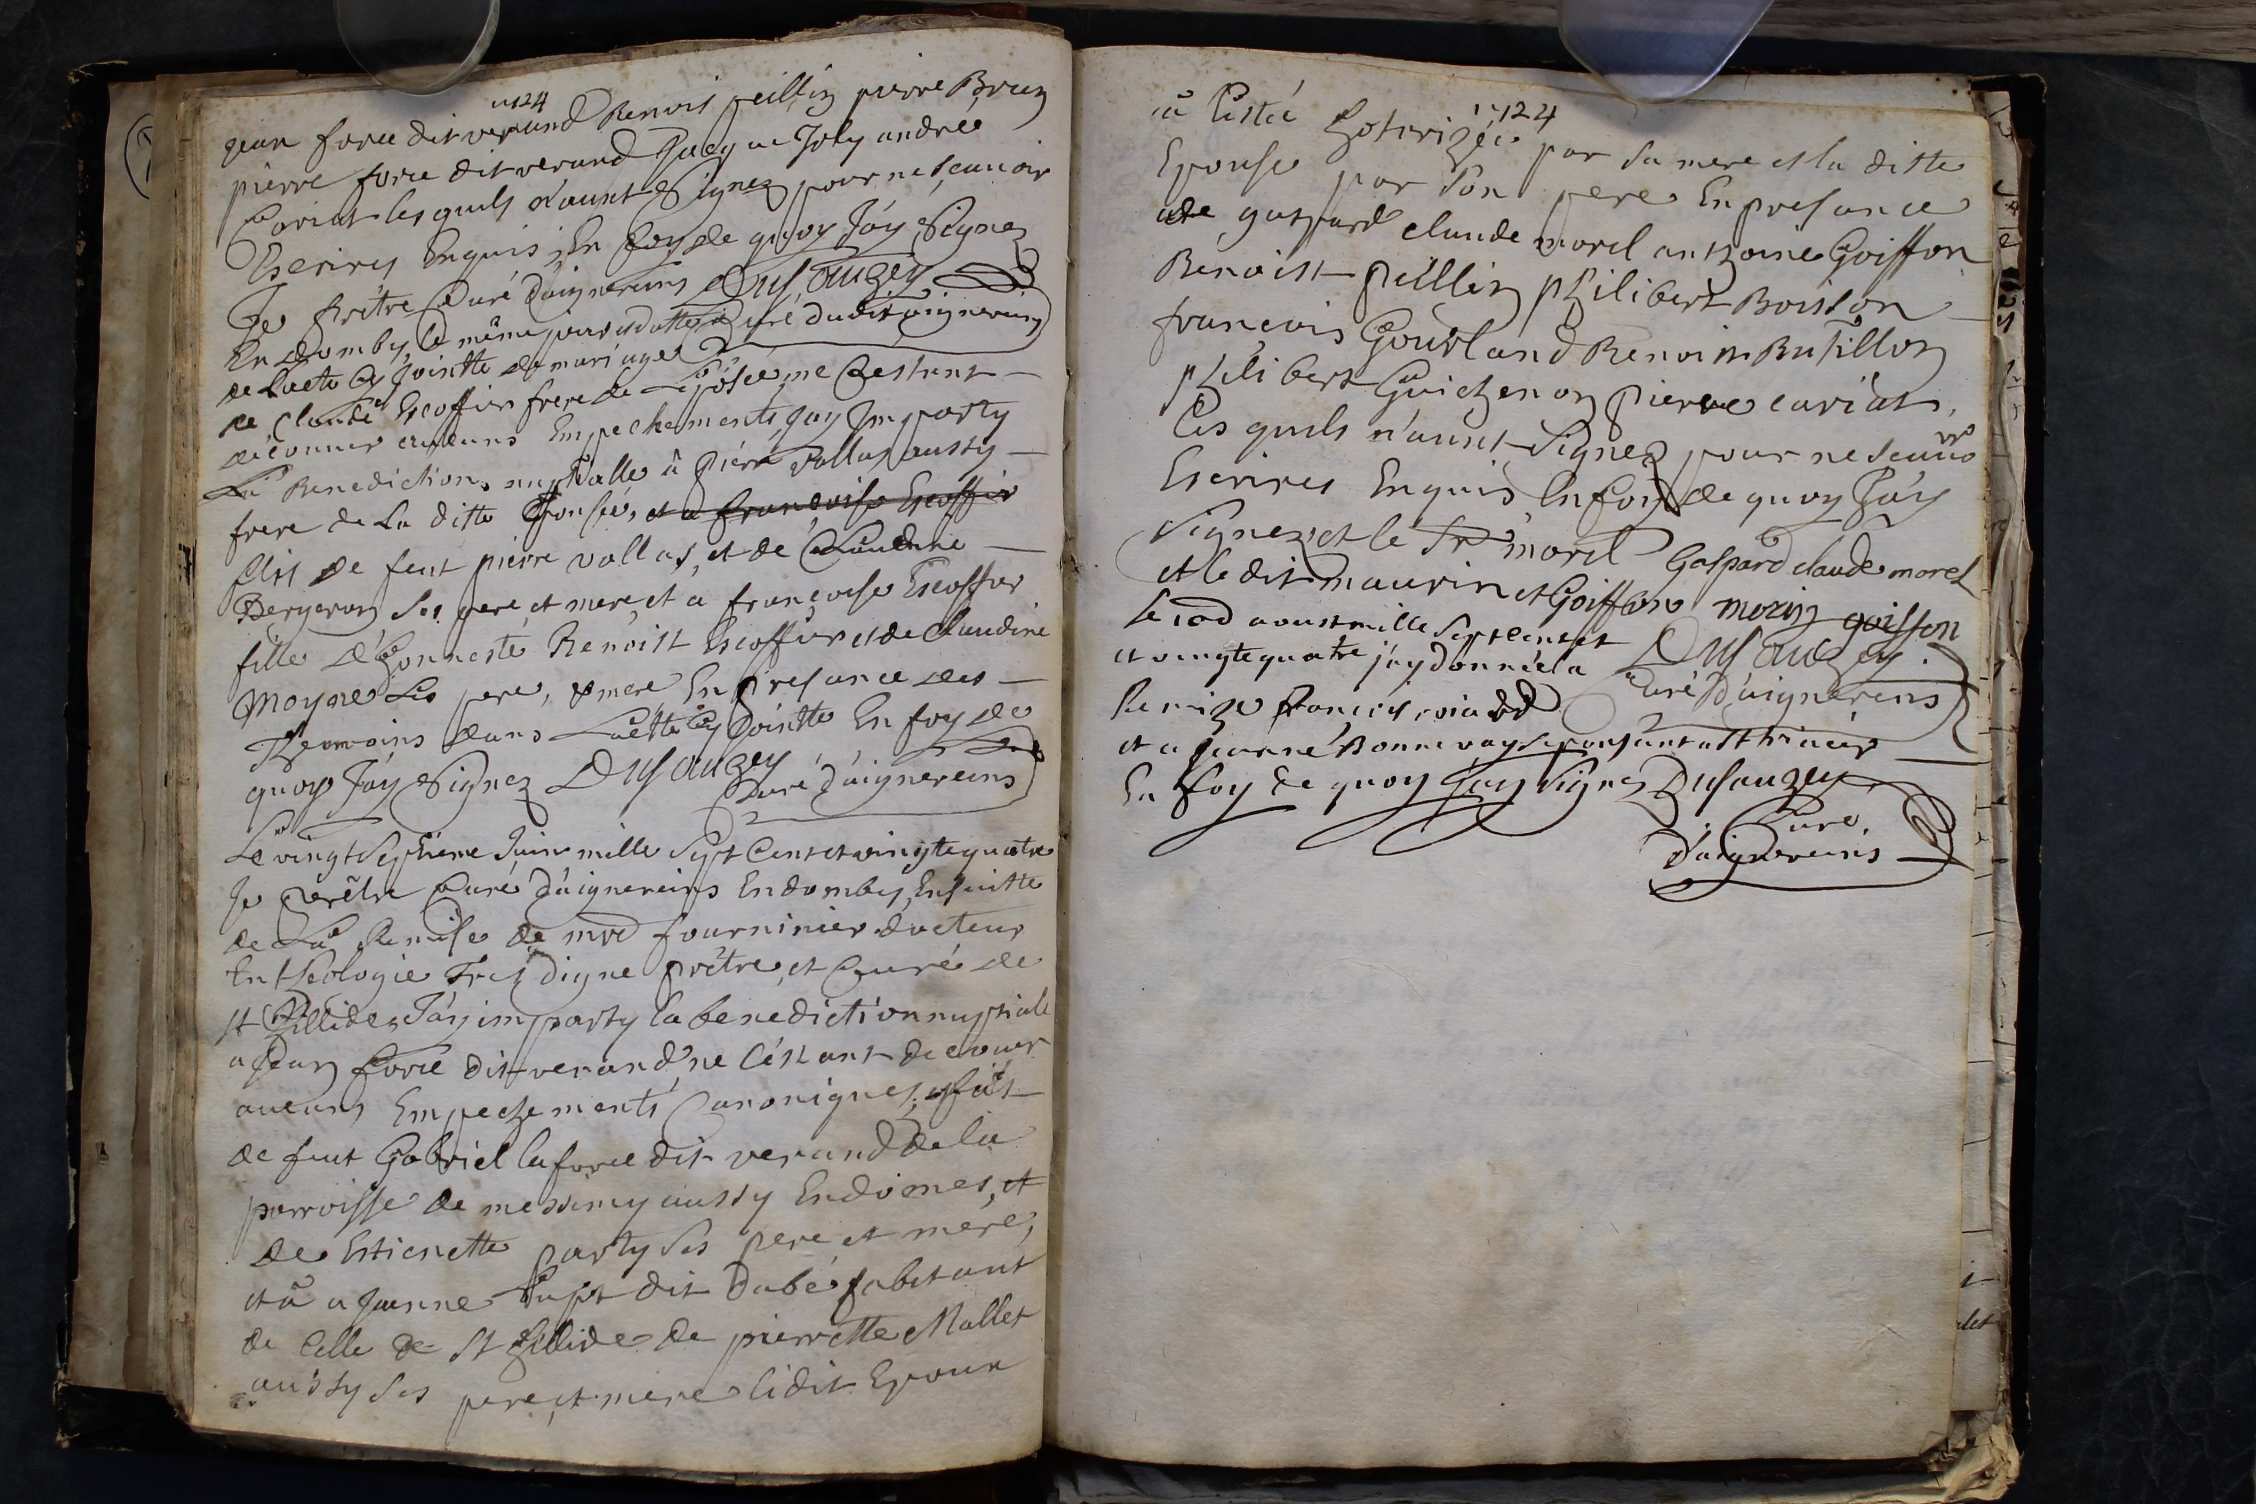 1724
jean force dit verand Benoist peillin pierre Brun
pierre force dit verand Jacque Joly andree
Cariat les quels n'aunt Signez pour ne scauoir
Escrires Enquis; En foy de quoy J'ay Signez
Je Prêtre Curé d'aignereins Dusauzey
En domby, le même jour et datte Curé dudit aignereins
de L'acte cy jointte de mariage
de Claude Escoffier frere de L'Eposée, ne Cestant
déconuer aucuns Empechements, jay Imparty
La Benediction nuptialle â pierre vallas aussy
frere de La ditte Epousée, et a françoise Escoffier
fils de feut pierre vallas, et de Claudine
Bergeron ses pere et mere, et a françoise Escoffier
fille d'honneste Benoist Escoffier et de Claudine
moyne ses pere, et mere En presance des
Themoins dans L'actte cy Jointte En foy de
quoy J'ay Signez Dusauzey
Curé d'aignereins
Le vingt Septieme Juin mille Sept Cent et vingte quatre
Je prêtre Curé d'aignereins En domby, Ensuitte
de La Remise de mre fourninier docteur
En theologie Tres digne prêtre, et Curé de
st Hillide, J'ay imparty la benediction nuptiale
a Jean force dit verand, ne Cestant decouer
aucuns Empechements Canoniques, et fait
de feut Gabriel la force dit verand de la
parroisse de messimy aussy En domes, et
de Estienette party ses pere et mere,
et â a Jeanne dit Dabé habitant
de Celle de St Hillide de pierrette Mallet
aussy ses pere, et mere lidit Epoux
1724
â Estée hotorizée par sa mere et la ditte
Epouse par son pere En presance
de gaspard claude morel anthoine Goiffon
Benoist peillin philibert Boisson
francois Gourland Benoist Butillon
philibert Guichenon pierre cariat,
Les quels n'aunt Signez pour ne scauoir
Escrires Enquis, En foy de quoy J'ay
Signez et le Sr morel Gaspard claude morel
et le dit maurin et Goiffon morin goiffon
le aoust mille Sept cent et Dusauzey
et vingte quatre j'ay donnée la Curé d'aignereins
Remize francois
et a jeanne Bonne
En foy de quoy Jay Signez Dusauzey
Curé
D'aignereins